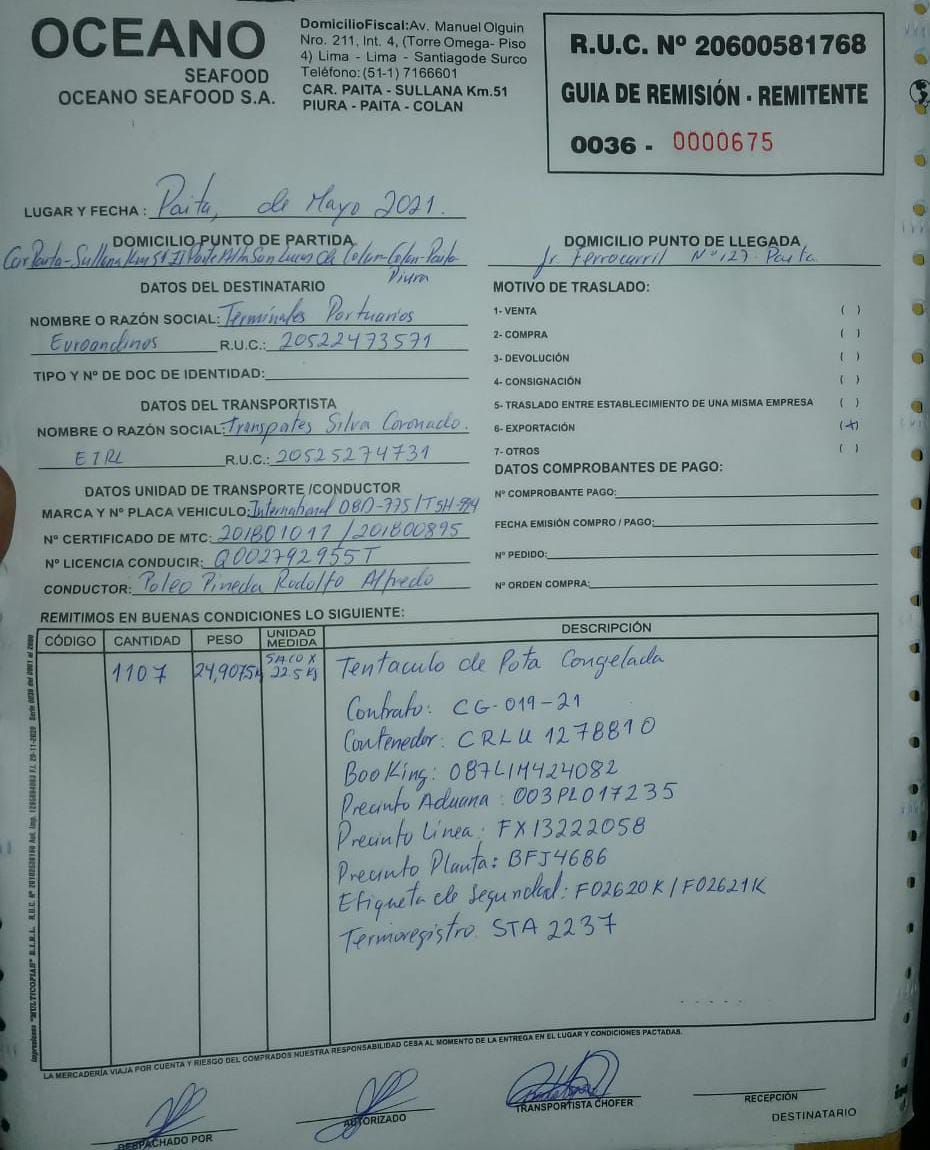 OCEANO
SEAFOOD
OCEANO SEAFOOD S.A.
DomicilioFiscal:Av. Manuel Olguin
Nro. 211, Int. 4, (Torre Omega- Piso
4) Lima - Lima - Santiagode Surco
Teléfono: (51-1) 7166601
CAR. PAITA - SULLANA Km.51
PIURA - PAITA - COLAN
R.U.C. Nº 20600581768
GUIA DE REMISIÓN - REMITENTE
0036 - 0000675
LUGAR Y FECHA : Paita, de Mayo 2021.
DOMICILIO PUNTO DE PARTIDA
Car Paita-Sullana Km 51 Parte Alta San Lucas de Colan-Colan-Paita
Piura
DOMICILIO PUNTO DE LLEGADA
Jr. Ferrocarril Nº 127 Paita
DATOS DEL DESTINATARIO
NOMBRE O RAZÓN SOCIAL: Terminales Portuarios
Euroandinos R.U.C.: 20522473571
TIPO Y Nº DE DOC DE IDENTIDAD:
DATOS DEL TRANSPORTISTA
NOMBRE O RAZÓN SOCIAL: Transpotes Silva Coronado.
EIRL R.U.C.: 20525274731
DATOS UNIDAD DE TRANSPORTE /CONDUCTOR
MARCA Y Nº PLACA VEHICULO: International
Nº CERTIFICADO DE MTC: 201801011 / 201800895
Nº LICENCIA CONDUCIR: Q002792955T
CONDUCTOR: Poleo Pineda Rodolfo Alfredo
MOTIVO DE TRASLADO:
1- VENTA ( )
2- COMPRA ( )
3- DEVOLUCIÓN ( )
4- CONSIGNACIÓN ( )
5- TRASLADO ENTRE ESTABLECIMIENTO DE UNA MISMA EMPRESA ( )
6- EXPORTACIÓN (x)
7- OTROS ( )
DATOS COMPROBANTES DE PAGO:
Nº COMPROBANTE PAGO:
FECHA EMISIÓN COMPRO / PAGO:
Nº PEDIDO:
Nº ORDEN COMPRA:
REMITIMOS EN BUENAS CONDICIONES LO SIGUIENTE:
CÓDIGO CANTIDAD PESO UNIDAD MEDIDA DESCRIPCIÓN
1107 24,9075k SACO X 22.5 kg Tentaculo de Pota Congelada
Contrato: CG-019-21
Contenedor: CRLU 1278810
Booking: 087LIM424082
Precinto Aduana: 003PL017235
Precinto Línea: FX13222058
Precinto Planta: BFJ4686
Etiqueta de Seguridad: F02620K/F02621K
Termoregistro STA 2237
LA MERCADERÍA VIAJA POR CUENTA Y RIESGO DEL COMPRADOS NUESTRA RESPONSABILIDAD CESA AL MOMENTO DE LA ENTREGA EN EL LUGAR Y CONDICIONES PACTADAS.
DESPACHADO POR
AUTORIZADO
TRANSPORTISTA CHOFER
RECEPCIÓN
DESTINATARIO